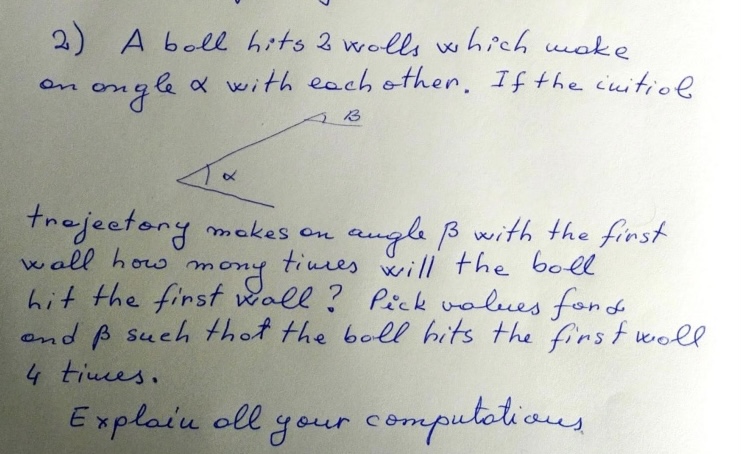 2) A ball hits 2 walls which make
an angle α with each other. If the initial
β
α
trajectory makes an angle β with the first
wall how many times will the ball
hit the first wall? Pick values for α
and β such that the ball hits the first wall
4 times.
Explain all your computations